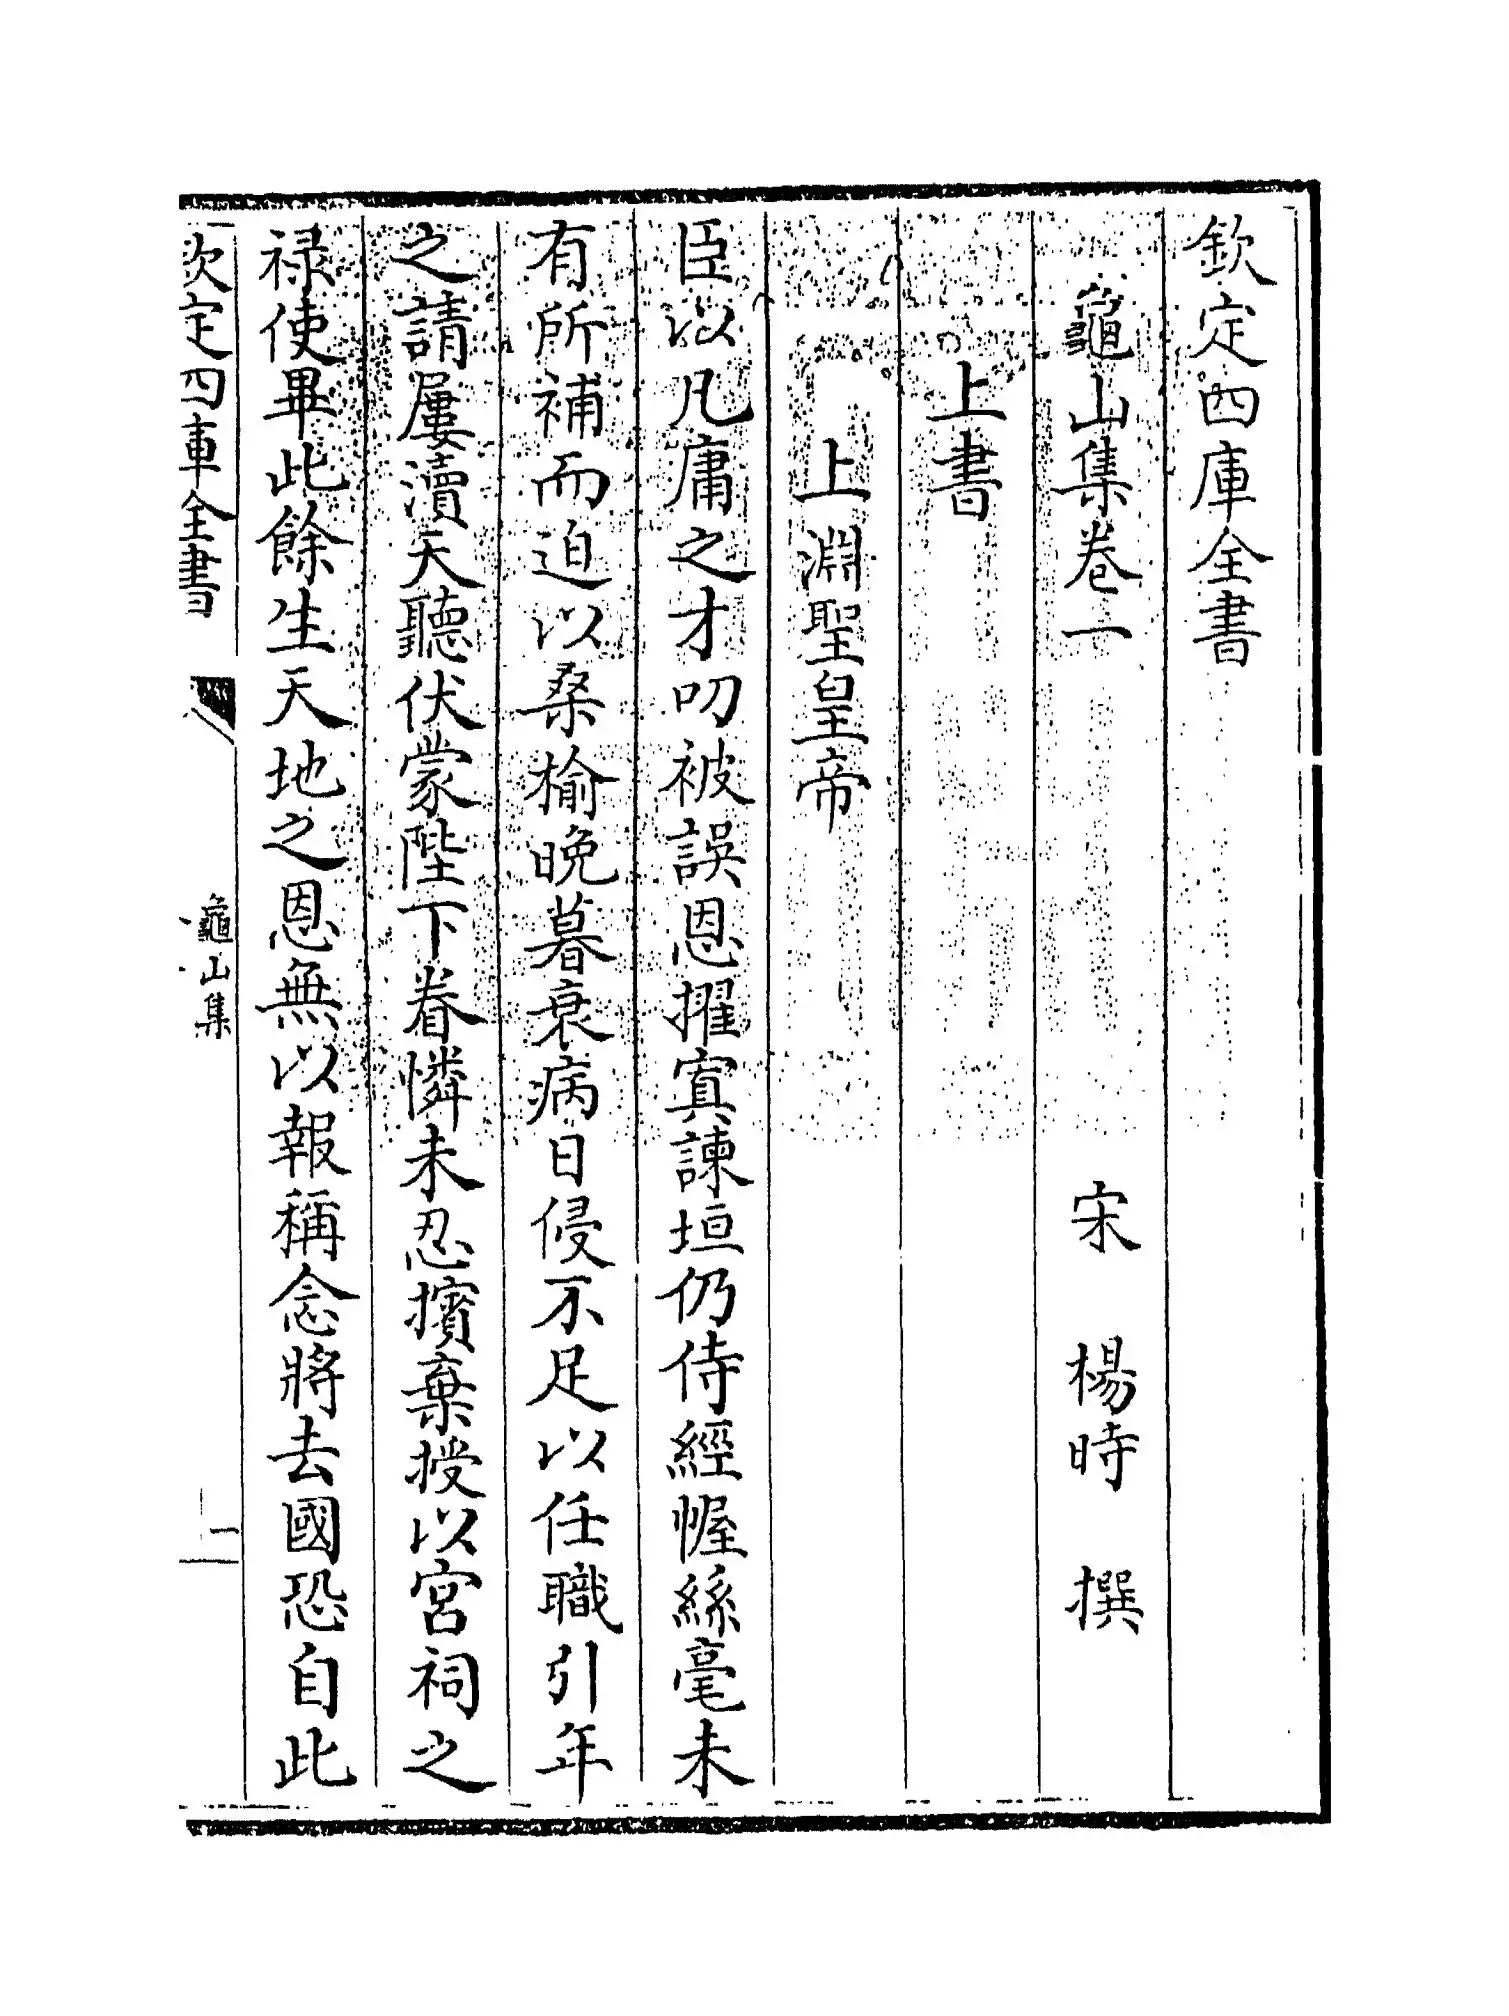 欽定四庫全書
龜山集卷一　宋　楊時　撰
上書
上淵聖皇帝
臣以凡庸之才叨被誤恩擢寘諫垣仍侍經幄絲毫未
有所補而迫以桑榆晚暮衰病日侵不足以任職引年
之請屢瀆天聽伏蒙陛下眷憐未忍擯棄授以宮祠之
祿使畢此餘生天地之恩無以報稱念將去國恐自此
欽定四庫全書
龜山集
一